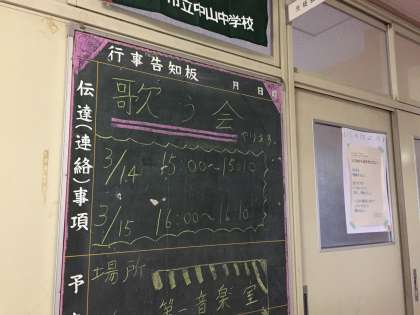 市立中山中学校
行事告知板
月 日
伝達(連絡)事項
歌う会
やります。
3/14 15:00~15:10
3/15 16:00~16:10
場所
第一音楽室
予